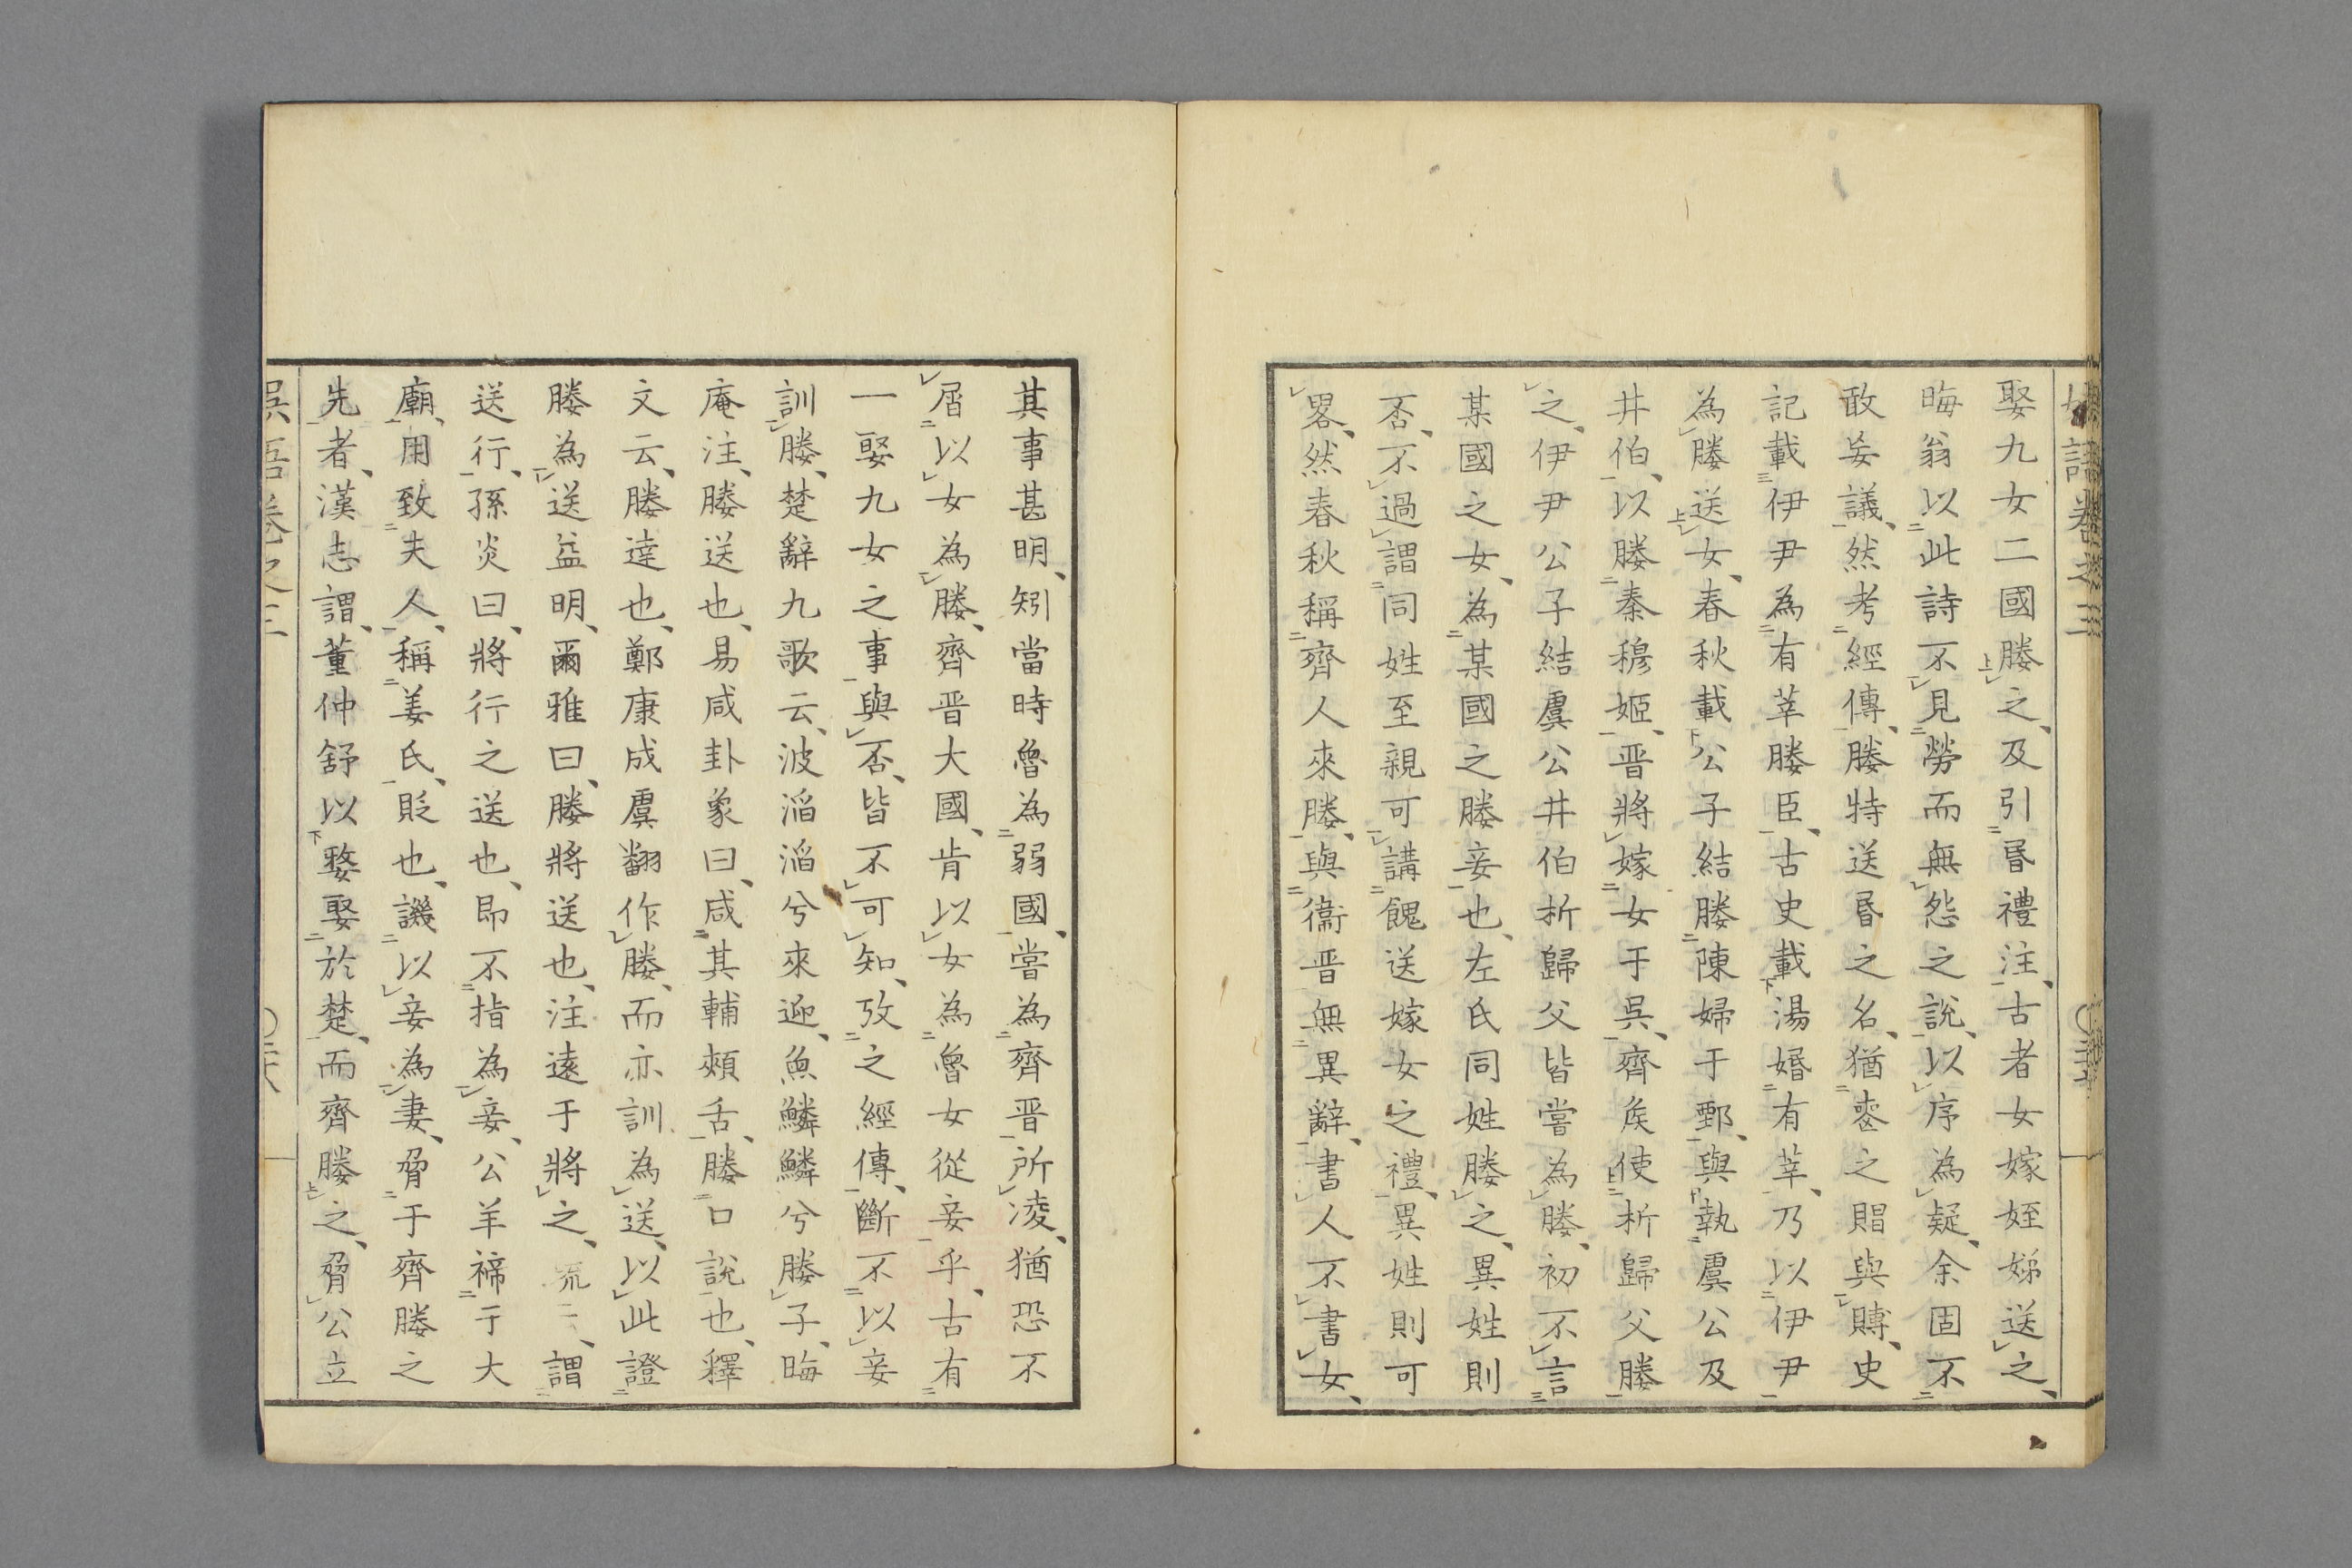 娶九女二國媵之、及引昏禮注、古者女嫁姪娣送之、
晦翁以此詩不見勞而無怨之說、以序為疑、余固不
敢妄議、然考經傳、媵特送昏之名、猶喪之賵與賻、史
記載伊尹為有莘媵臣、古史載湯婚有莘、乃以伊尹
為媵送女、春秋載公子結媵陳婦于鄄、與執虞公及
井伯、以媵秦穆姬、晋將嫁女于吳、齊矦使析歸父媵
之、伊尹公子結虞公井伯析歸父皆嘗為媵、初不言
某國之女、為某國之媵妾也、左氏同姓媵之、異姓則
否、不過謂同姓至親可講餽送嫁女之禮、異姓則可
畧、然春秋稱齊人來媵、與衞晋無異辭、書人不書女、
其事甚明、矧當時魯為弱國、嘗為齊晋所凌、猶恐不
屑以女為媵、齊晋大國、肯以女為魯女從妾乎、古有
一娶九女之事與否、皆不可知、攷之經傳、斷不以妾
訓媵、楚辭九歌云、波滔滔兮來迎、魚鱗鱗兮媵子、晦
庵注、媵送也、易咸卦象曰、咸其輔頰舌、媵口說也、釋
文云、媵達也、鄭康成虞翻作媵、而亦訓為送、以此證
媵為送益明、爾雅曰、媵將送也、注遠于將之、謂
送行、孫炎曰、將行之送也、即不指為妾、公羊禘于大
廟、用致夫人、稱姜氏、貶也、譏以妾為妻、脅于齊媵之
先者、漢志謂、董仲舒以釐娶於楚、而齊媵之、脅公立